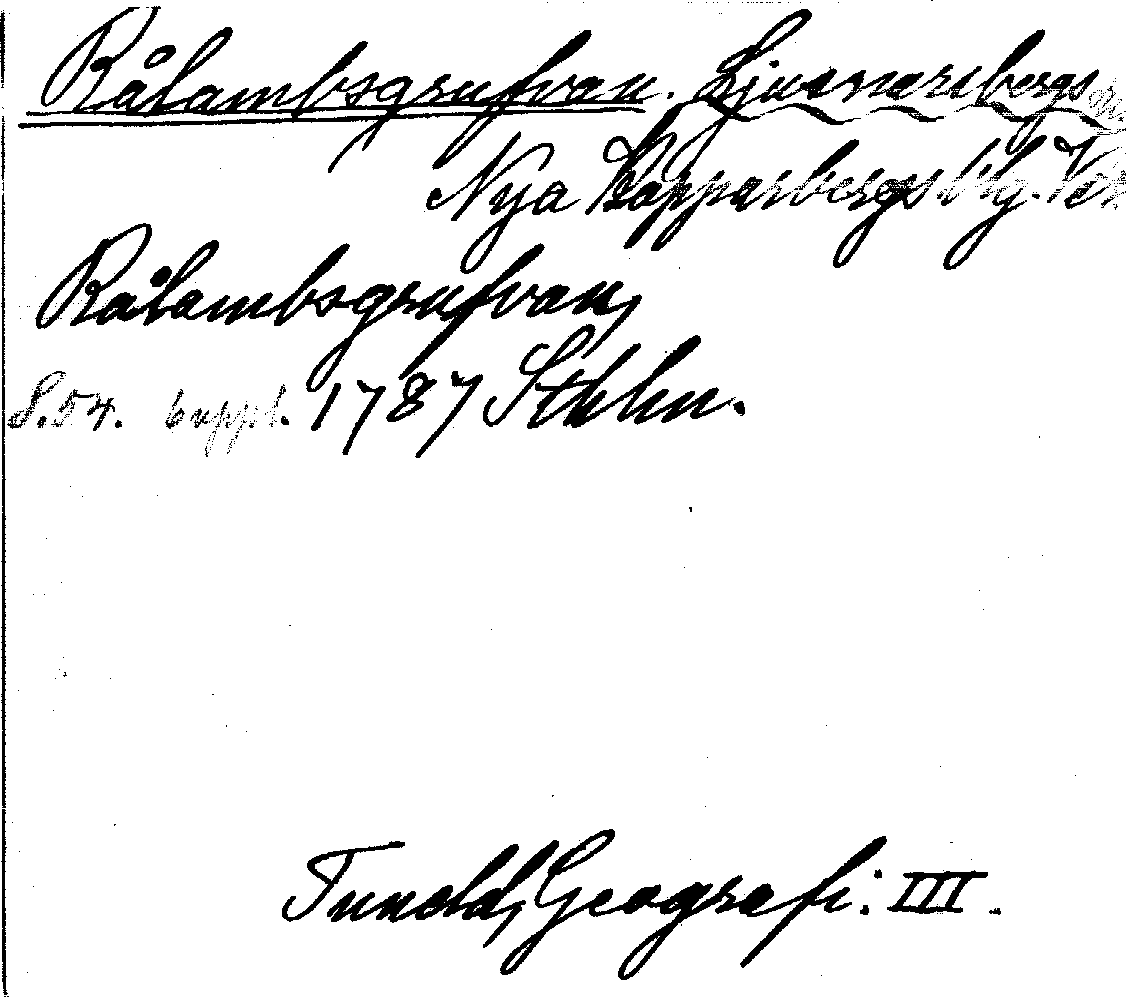 Rålambsgrufvan. Ljusnarsbergs
Nya Kopparbergs brg.
Rålambsgrufvan,
S.54. 6 uppl. 1787 Sthlm.
Tuneld, Geografi: III.